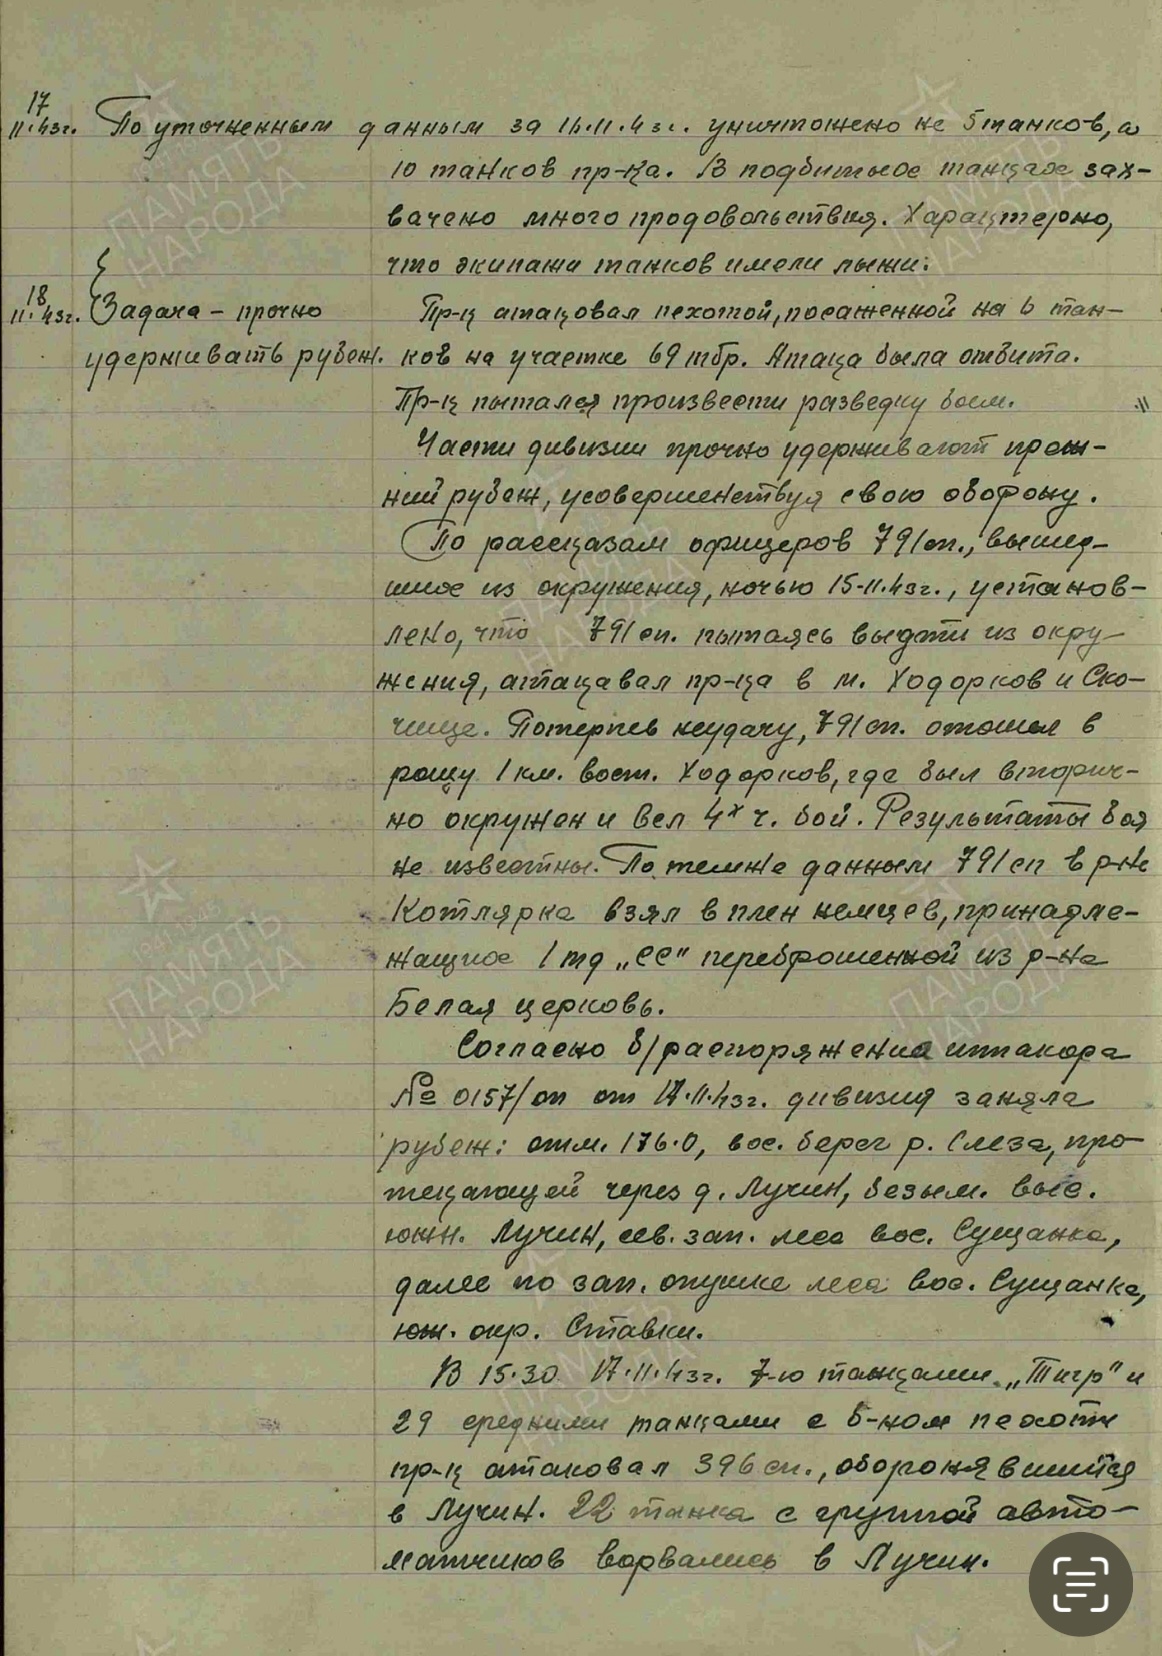 17
11.43г. По уточненным данным за 16.11.43г. уничтожено не 5 танков, а
10 танков пр-ка. В подбитых танках зах-
вачено много продовольствия. Характерно,
что экипажи танков имели лыжи.
18
11.43г. Задача – прочно
удерживать рубеж.
Пр-к атаковал пехотой, посаженной на 6 тан-
ков на участке 69 тбр. Атака была отбита.
Пр-к пытался произвести разведку боем.
Части дивизии прочно удерживают преж-
ний рубеж, усовершенствуя свою оборону.
По рассказам офицеров 791 сп., вышед-
ших из окружения, ночью 15.11.43г., установ-
лено, что 791 сп. пытаясь выйти из окру-
жения, атаковал пр-ка в м. Ходорков и Ско-
чище. Потерпев неудачу, 791 сп. отошел в
рощу 1 км. вост. Ходорков, где был вторич-
но окружен и вел 4х ч. бой. Результаты боя
не известны. По тем же данным 791 сп в р-не
Котлярка взял в плен немцев, принадле-
жащих 1 тд „СС" переброшенной из р-на
Белая церковь.
Согласно б/распоряжения штакора
№ 0157/оп от 17.11.43г. дивизия заняла
рубеж: отм. 176.0, вос. берег р.
протекающей через д. Лучин, безым. выс.
южн. Лучин, сев. зап. леса вос. Сущанка,
далее по зап. опушке леса вос. Сущанка,
юж. окр. Ставки.
В 15.30 17.11.43г. 7-ю танками „Тигр" и
29 средними танками с б-ном пехоты
пр-к атаковал 396 сп., оборонявшийся
в Лучин. 22 танка с группой авто-
матчиков ворвались в Лучин.